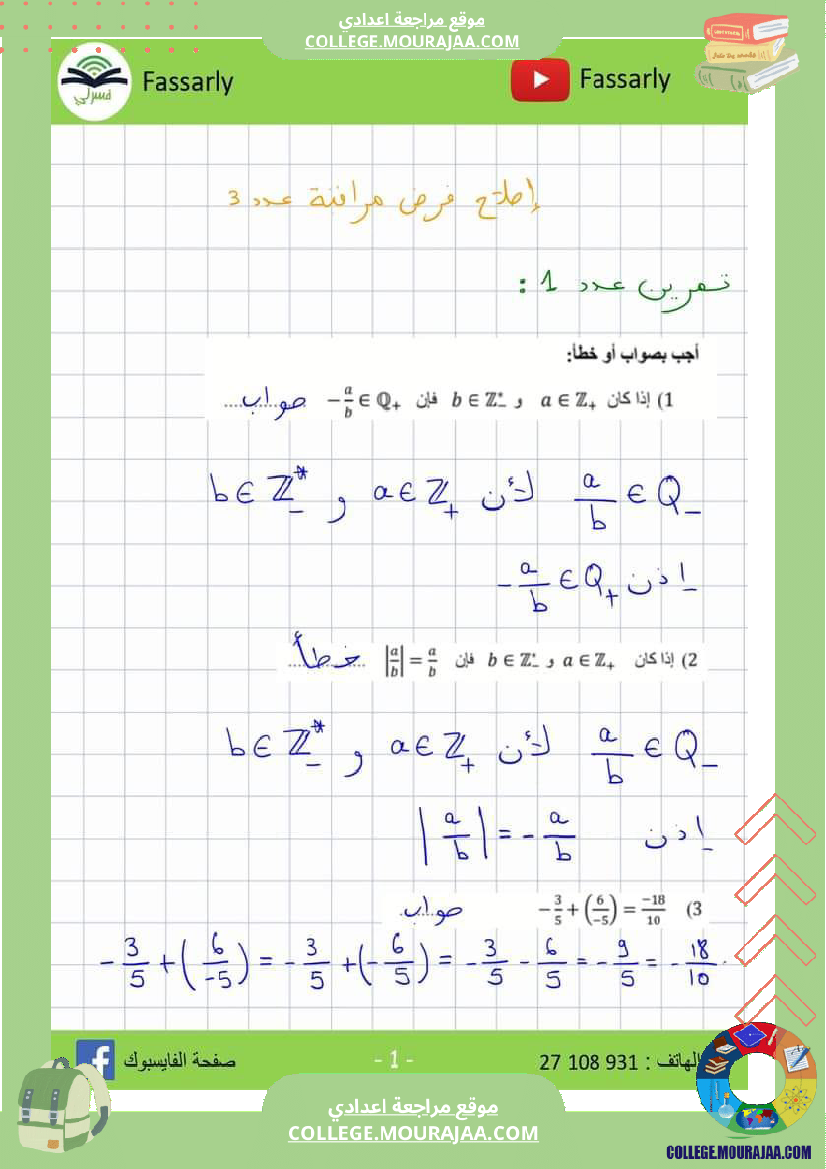 موقع مراجعة اعدادي
COLLEGE.MOURAJAA.COM
Fassarly
فسرلي
Fassarly
إصلاح فرض مراقبة عدد 3
تمرين عدد 1 :
أجب بصواب أو خطأ:
1) إذا كان a ∈ ℤ₊ و b ∈ ℤ₋* فإن −a/b ∈ ℚ₊ ....صواب....
a/b ∈ Q₋ لأن a ∈ ℤ₊ و b ∈ ℤ₋*
إذن −a/b ∈ Q₊
2) إذا كان a ∈ ℤ₊ و b ∈ ℤ₋* فإن |a/b| = a/b ....خطأ....
a/b ∈ Q₋ لأن a ∈ ℤ₊ و b ∈ ℤ₋*
إذن |a/b| = −a/b
3) −3/5 + (6/−5) = −18/10 صواب
−3/5 + (6/−5) = −3/5 + (−6/5) = −3/5 − 6/5 = −9/5 = −18/10
صفحة الفايسبوك
- 1 -
الهاتف : 27 108 931
موقع مراجعة اعدادي
COLLEGE.MOURAJAA.COM
COLLEGE.MOURAJAA.COM